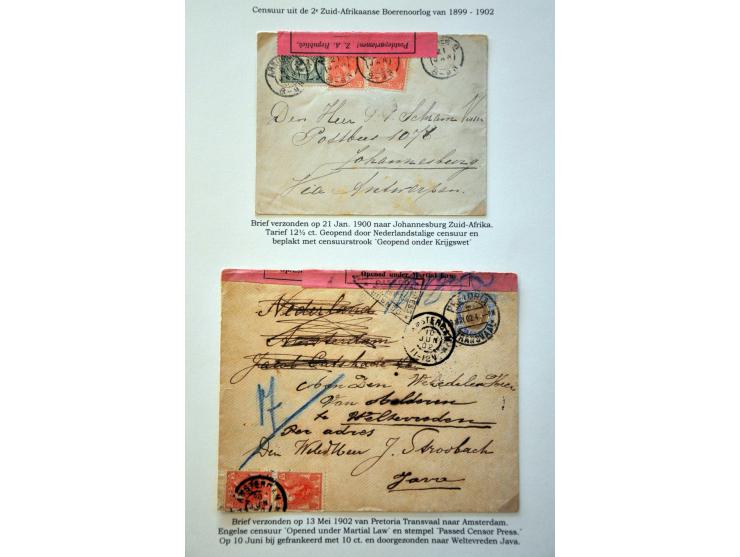 Censuur uit de 2ᵉ Zuid-Afrikaanse Boerenoorlog van 1899 - 1902
Postdepartement Z. A. Republiek.
Den Heer
Postbus 1078
Johannesburg
Via Antwerpen.
Brief verzonden op 21 Jan. 1900 naar Johannesburg Zuid-Afrika.
Tarief 12½ ct. Geopend door Nederlandstalige censuur en
beplakt met censuurstrook ¨Geopend onder Krijgswet¨
Opened under Martial Law
PRETORIA
TRANSVAAL
Nederland
Amsterdam
AMSTERDAM
10
JUN
02
11-12V
Jacob Catskade
Aan Den WelEdelen Heer
17
Van Alderen
te Weltevreden
Per adres
Den WelEdHeer J. Stroobach
Java
AMSTERDAM
Brief verzonden op 13 Mei 1902 van Pretoria Transvaal naar Amsterdam.
Engelse censuur ¨Opened under Martial Law¨ en stempel ¨Passed Censor Press.¨
Op 10 Juni bij gefrankeerd met 10 ct. en doorgezonden naar Weltevreden Java.